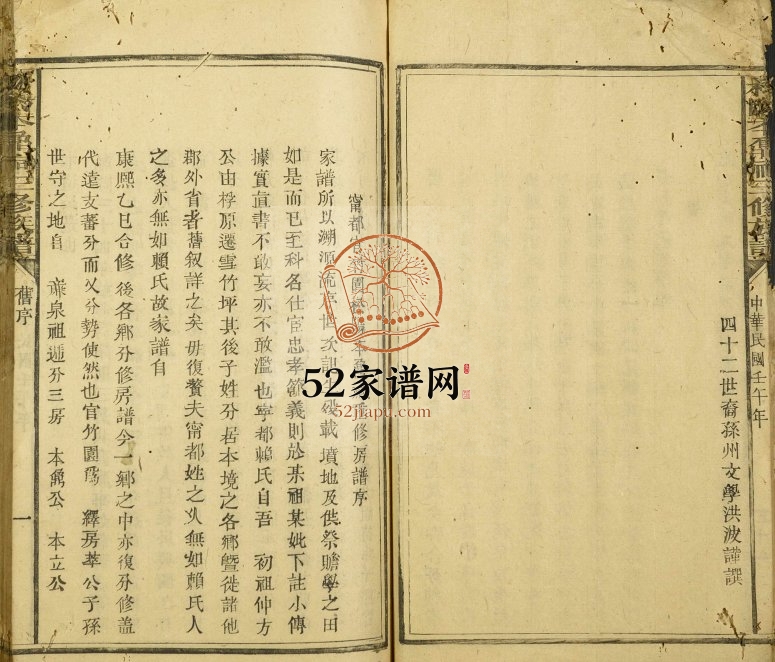 四十二世裔孫州文學洪波謹撰
中華民國壬午年
甯都官竹園 修房譜序
家譜所以溯源流 世次 載墳地及供祭贍學之田
如是而已至科名仕宦忠孝節義則於某祖某妣下註小傳
據實直書不敢妄亦不敢濫也寧都賴氏自吾 初祖仲方
公由桴原遷雪竹坪其後子姓分居本境之各鄉暨徙諸他
郡外省者舊叙詳之矣毋復贅夫甯都姓之 無如賴氏人
之多亦無如賴氏故家譜自
康熙乙巳合修 後各鄉分修房譜今一鄉之中亦復分修蓋
代遠支蕃分而又分勢使然也官竹園爲 繹房莘公子孫
世守之地自 亷泉祖遞分三房 本雋公 本立公
舊序
一
52家谱网
52jiapu.com